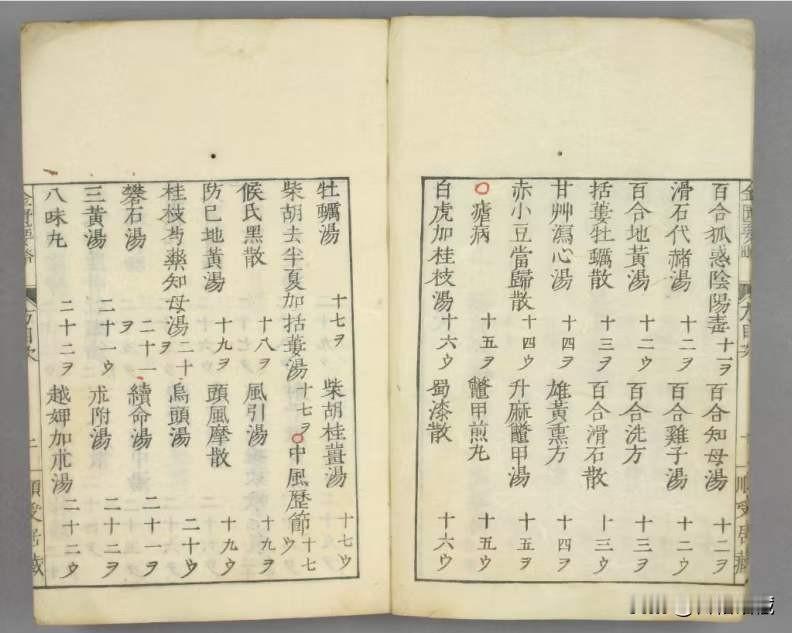 百合狐惑陰陽毒 十一ヲ 百合知母湯 十二ヲ
滑石代赭湯 十二ヲ 百合雞子湯 十二ウ
百合地黃湯 十二ウ 百合洗方 十三ヲ
括蔞牡蠣散 十三ヲ 百合滑石散 十三ウ
甘艸瀉心湯 十四ヲ 雄黃熏方 十四ヲ
赤小豆當歸散 十四ヲ 升麻鼈甲湯 十四ウ
○瘧病 十五ヲ 鼈甲煎丸 十五ウ
白虎加桂枝湯 十六ウ 蜀漆散 十六ウ
牡蠣湯 十七ヲ 柴胡桂薑湯 十七ウ
柴胡去半夏加括蔞湯 十七ヲ ○中風歷節 十七ウ
侯氏黑散 十八ヲ 風引湯 十九ヲ
防已地黃湯 十九ヲ 頭風摩散 十九ウ
桂枝芍藥知母湯 二十ヲ 烏頭湯 二十ウ
礬石湯 二十一ヲ 續命湯 二十一ヲ
三黃湯 二十一ウ 朮附湯 二十二ヲ
八味丸 二十二ヲ 越婢加朮湯 二十二ウ
金匱要略 方目次 二